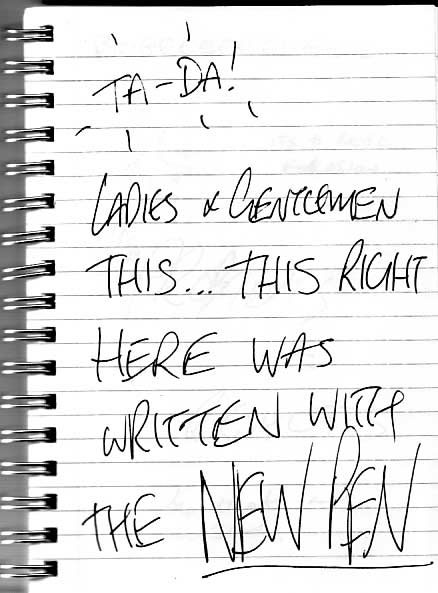 TA-DA!
LADIES & GENTLEMEN
THIS... THIS RIGHT
HERE WAS
WRITTEN WITH
THE NEW PEN